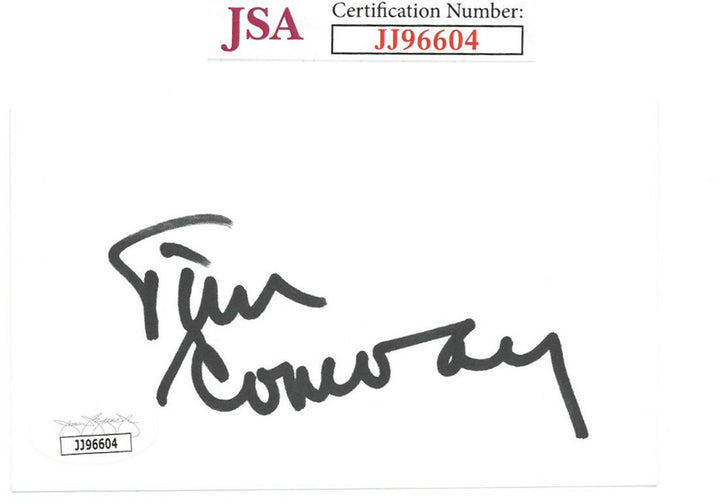 JSA
Certification Number:
JJ96604
Tim
Conway
JJ96604